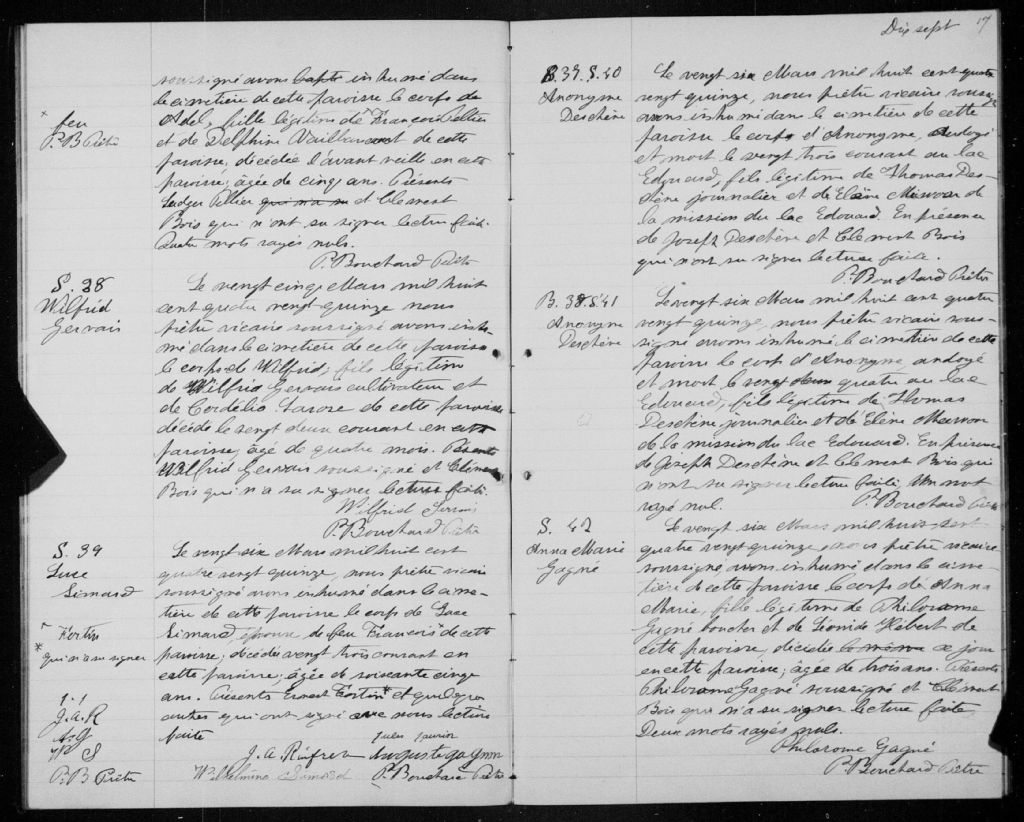 soussigné avons baptis inhumé dans
le cimetière de cette paroisse le corps de
Adel, fille légitime de * François Pellier
* feu
P. B Ptre
et de Delphine Vaillancourt de cette
paroisse, décédée l'avant veille en cette
paroisse, âgée de cinq ans. Présents
Ludger Pellier qui n'a su et Clément
Bois qui n'ont su signer lecture faite.
Quatre mots rayés nuls.
P. Bouchard Ptre
S. 38
Wilfrid
Gervais
Le vingt cinq Mars mil huit
cent quatre vingt quinze nous
prêtre vicaire soussigné avons inhu-
mé dans le cimetière de cette paroisse
le corps de Wilfrid, fils légitime
de Wilfrid Gervais cultivateur et
de Cordélia Larose de cette paroisse
décédé le vingt deux courant en cette
paroisse, âgé de quatre mois. Présents
Wilfrid Gervais soussigné et Clément
Bois qui n'a su signer lecture faite.
Wilfrid Gervais
P. Bouchard Ptre
S. 39
Luce
Simard
Le vingt six Mars mil huit cent
quatre vingt quinze, nous prêtre vicaire
soussigné avons inhumé dans le cime-
tière de cette paroisse le corps de Luce
Simard, épouse de feu François * de cette
* Fortin
paroisse, décédée vingt trois courant en
* qui n'a su signer
cette paroisse, âgée de soixante cinq
ans. Présents Ernest Fortin * et quelques
autres qui ont signé avec nous lecture
faite
J. A. R
A. G
W S
P. B Ptre
J. A. Auguste Gagnon
Wilhelmine Simard P. Bouchard Ptre
Dix sept 17
B. 37. S. 40
Anonyme
Deschène
Le vingt six Mars mil huit cent quatre
vingt quinze, nous prêtre vicaire soussigné
avons inhumé dans le cimetière de cette
paroisse le corps d'Anonyme, ondoyé
et mort le vingt trois courant au lac
Edouard, fils légitime de Thomas Des-
chène journalier et de Elène de
la mission du lac Edouard. En présence
de Joseph Deschène et Clément Bois
qui n'ont su signer lecture faite.
P. Bouchard Ptre
B. 38. S. 41
Anonyme
Deschène
Le vingt six Mars mil huit cent quatre
vingt quinze, nous prêtre vicaire sous-
signé avons inhumé le cimetière de cette
paroisse le corps d'Anonyme, ondoyé
et mort le vingt deux quatre au lac
Edouard, fils légitime de Thomas
Deschène journalier et de Elène
de la mission du lac Edouard. En présence
de Joseph Deschène et Clément Bois qui
n'ont su signer lecture faite. Un mot
rayé nul.
P. Bouchard Ptre
S. 42
Anna Marie
Gagné
Le vingt six Mars mil huit cent
quatre vingt quinze, nous prêtre vicaire
soussigné avons inhumé dans le cime-
tière de cette paroisse le corps de Anna
Marie, fille légitime de Philorome
Gagné boucher et de Léonide Hébert de
cette paroisse, décédée le même ce jour
en cette paroisse, âgée de trois ans. Présents
Philorome Gagné soussigné et Clément
Bois qui n'a su signer lecture faite
Deux mots rayés nuls.
Philorome Gagné
P. Bouchard Ptre